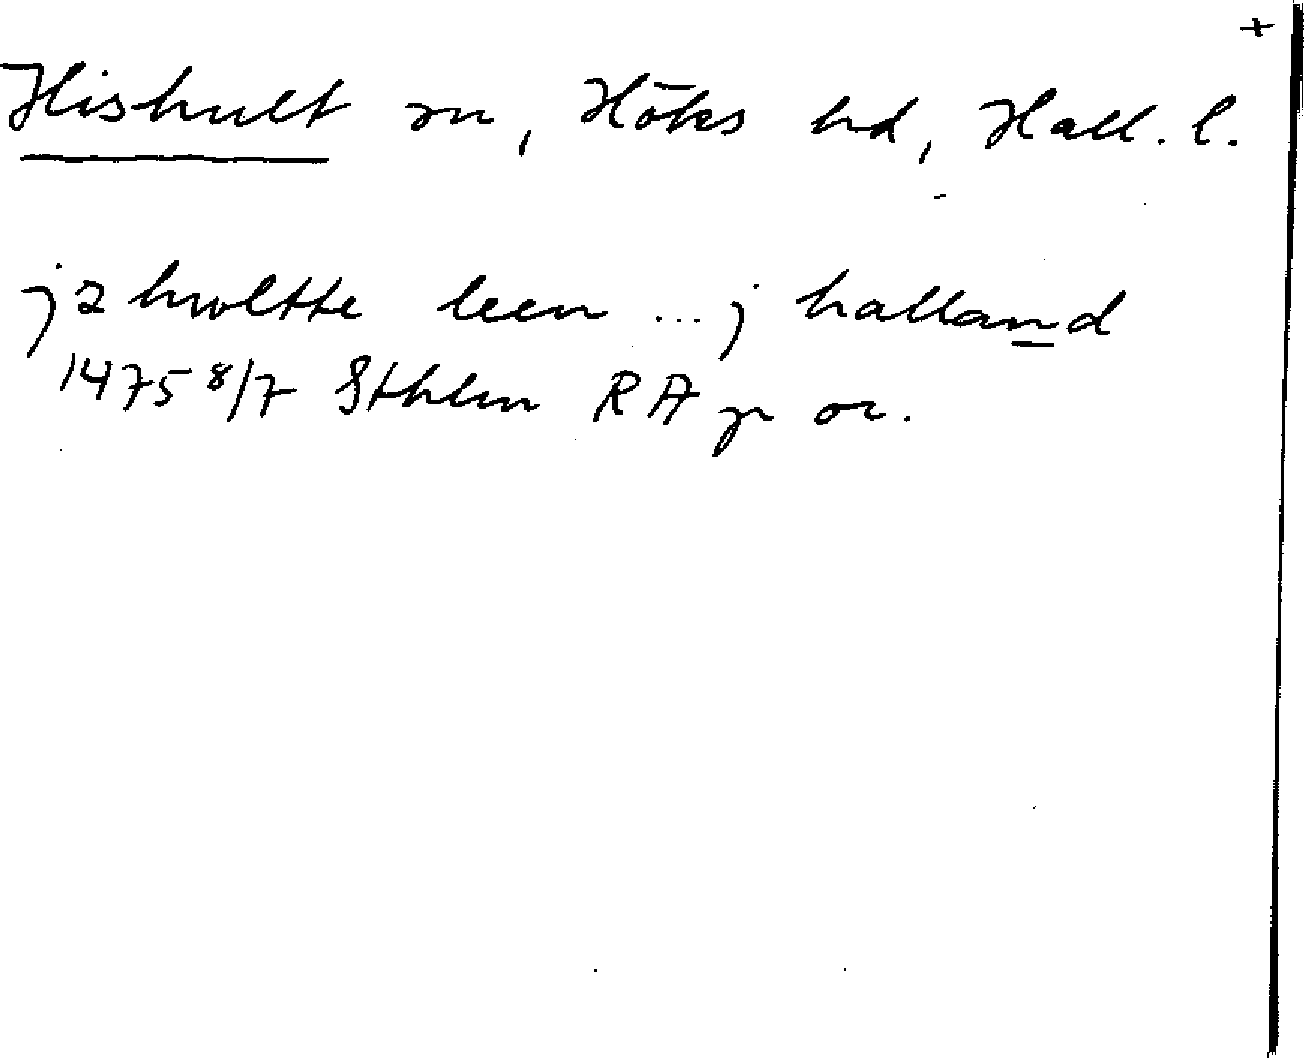 +
Hishult sn, Höks hd, Hall. l.
jz hwltte leen ... j halland
1475 8/7 Sthlm RA p or.